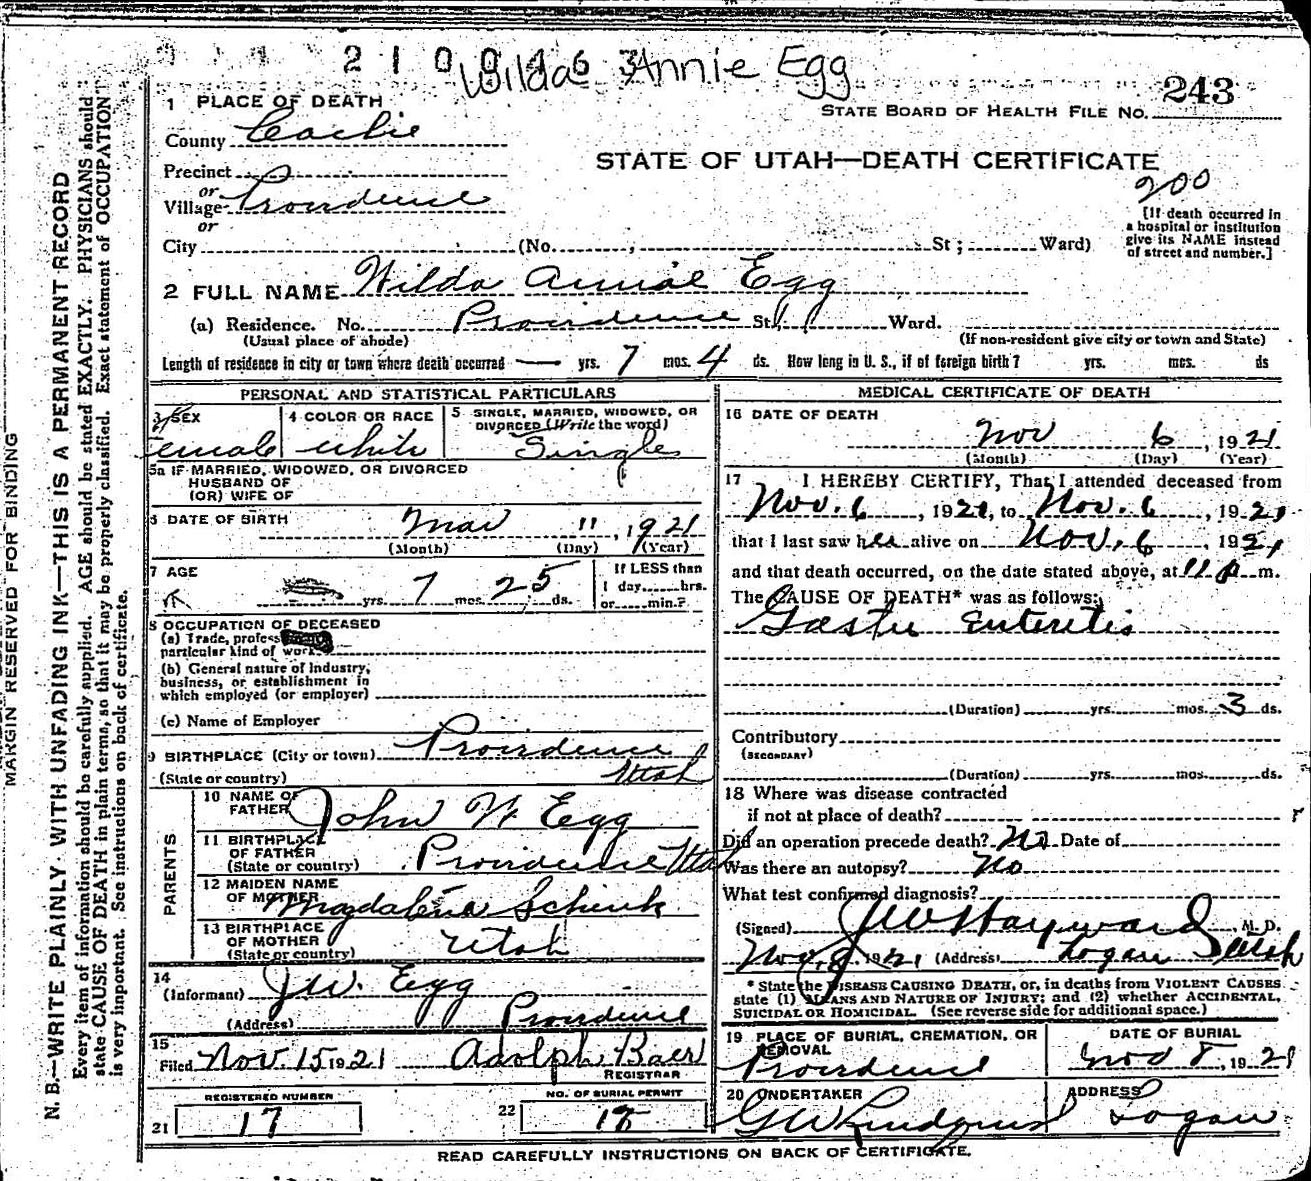 2100463
Wilda Annie Egg
243
STATE BOARD OF HEALTH FILE NO.
1 PLACE OF DEATH
County Cache
STATE OF UTAH—DEATH CERTIFICATE
200
Precinct
or
Village Providence
or
City (No. , St; Ward)
[If death occurred in
a hospital or institution
give its NAME instead
of street and number.]
2 FULL NAME Wilda Annie Egg
(a) Residence. No. Providence St. Ward.
(Usual place of abode)
(If non-resident give city or town and State)
Length of residence in city or town where death occurred — yrs. 7 mos. 4 ds. How long in U. S., if of foreign birth? yrs. mos. ds
PERSONAL AND STATISTICAL PARTICULARS
3 SEX
Female
4 COLOR OR RACE
white
5 SINGLE, MARRIED, WIDOWED, OR
DIVORCED (Write the word)
Single
5a IF MARRIED, WIDOWED, OR DIVORCED
HUSBAND OF
(OR) WIFE OF
6 DATE OF BIRTH Mar 11, 1921
(Month) (Day) (Year)
7 AGE
yrs. 7 mos. 25 ds.
If LESS than
1 day hrs.
or min.?
8 OCCUPATION OF DECEASED
(a) Trade, profess
particular kind of work
(b) General nature of industry,
business, or establishment in
which employed (or employer)
(c) Name of Employer
9 BIRTHPLACE (City or town) Providence
(State or country) Utah
PARENTS
10 NAME OF
FATHER John W Egg
11 BIRTHPLACE
OF FATHER
(State or country) Providence Utah
12 MAIDEN NAME
OF MOTHER Magdalena Schenk
13 BIRTHPLACE
OF MOTHER
(State or country) Utah
14
(Informant) J.W. Egg
(Address) Providence
15
Filed Nov. 15 1921 Adolph Baer
REGISTRAR
REGISTERED NUMBER
21 17
NO. OF BURIAL PERMIT
22 18
MEDICAL CERTIFICATE OF DEATH
16 DATE OF DEATH
Nov 6, 1921
(Month) (Day) (Year)
17 I HEREBY CERTIFY, That I attended deceased from
Nov. 6, 1921, to Nov. 6, 1921
that I last saw her alive on Nov. 6, 1921
and that death occurred, on the date stated above, at 11 P m.
The CAUSE OF DEATH* was as follows:
Gastro Enteretis
(Duration) yrs. mos. 3 ds.
Contributory
(SECONDARY)
(Duration) yrs. mos. ds.
18 Where was disease contracted
if not at place of death?
Did an operation precede death? No Date of
Was there an autopsy? No
What test confirmed diagnosis?
(Signed) J W Hayward M. D.
Nov. 8, 1921 (Address) Logan Utah
* State the DISEASE CAUSING DEATH, or, in deaths from VIOLENT CAUSES
state (1) MEANS AND NATURE OF INJURY; and (2) whether ACCIDENTAL,
SUICIDAL OR HOMICIDAL. (See reverse side for additional space.)
19 PLACE OF BURIAL, CREMATION, OR
REMOVAL
Providence
DATE OF BURIAL
Nov 8, 1921
20 UNDERTAKER
G W Lindquist
ADDRESS
Logan
READ CAREFULLY INSTRUCTIONS ON BACK OF CERTIFICATE.
MARGIN RESERVED FOR BINDING
N. B.—WRITE PLAINLY WITH UNFADING INK—THIS IS A PERMANENT RECORD
Every item of information should be carefully supplied. AGE should be stated EXACTLY. PHYSICIANS should
state CAUSE OF DEATH in plain terms, so that it may be properly classified. Exact statement of OCCUPATION
is very important. See instructions on back of certificate.